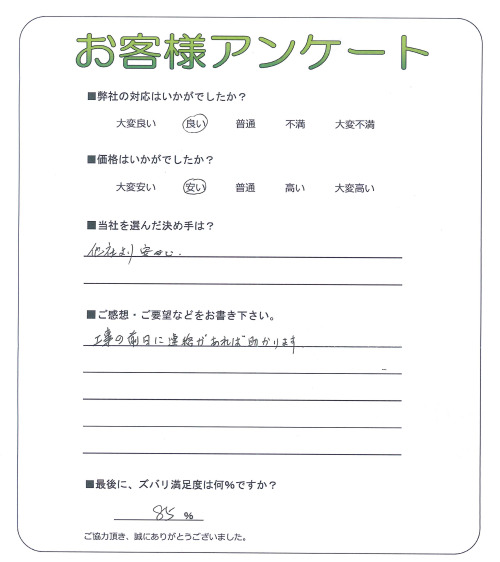 お客様アンケート
■弊社の対応はいかがでしたか？
大変良い 良い 普通 不満 大変不満
■価格はいかがでしたか？
大変安い 安い 普通 高い 大変高い
■当社を選んだ決め手は？
他社より安い.
■ご感想・ご要望などをお書き下さい。
工事の前日に連絡があれば助かります
■最後に、ズバリ満足度は何％ですか？
85 ％
ご協力頂き、誠にありがとうございました。